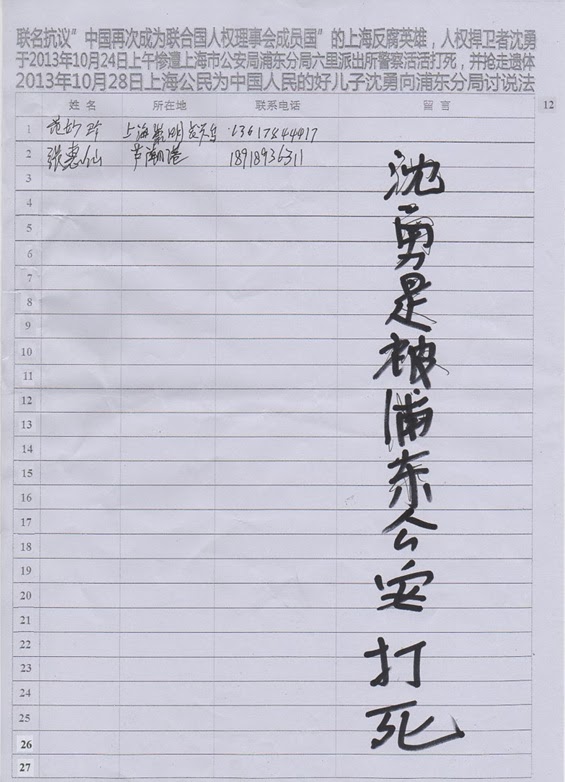 联名抗议"中国再次成为联合国人权理事会成员国"的上海反腐英雄，人权捍卫者沈勇
于2013年10月24日上午惨遭上海市公安局浦东分局六里派出所警察活活打死，并抢走遗体
2013年10月28日上海公民为中国人民的好儿子沈勇向浦东分局讨说法
姓 名 所在地 联系电话 留 言 12
1 上海崇明
2 张惠仙 芦潮港 18918936311
3
4
5
6
7
8
9
10
11
12
13
14
15
16
17
18
19
20
21
22
23
24
25
26
27
沈勇是被浦东公安打死